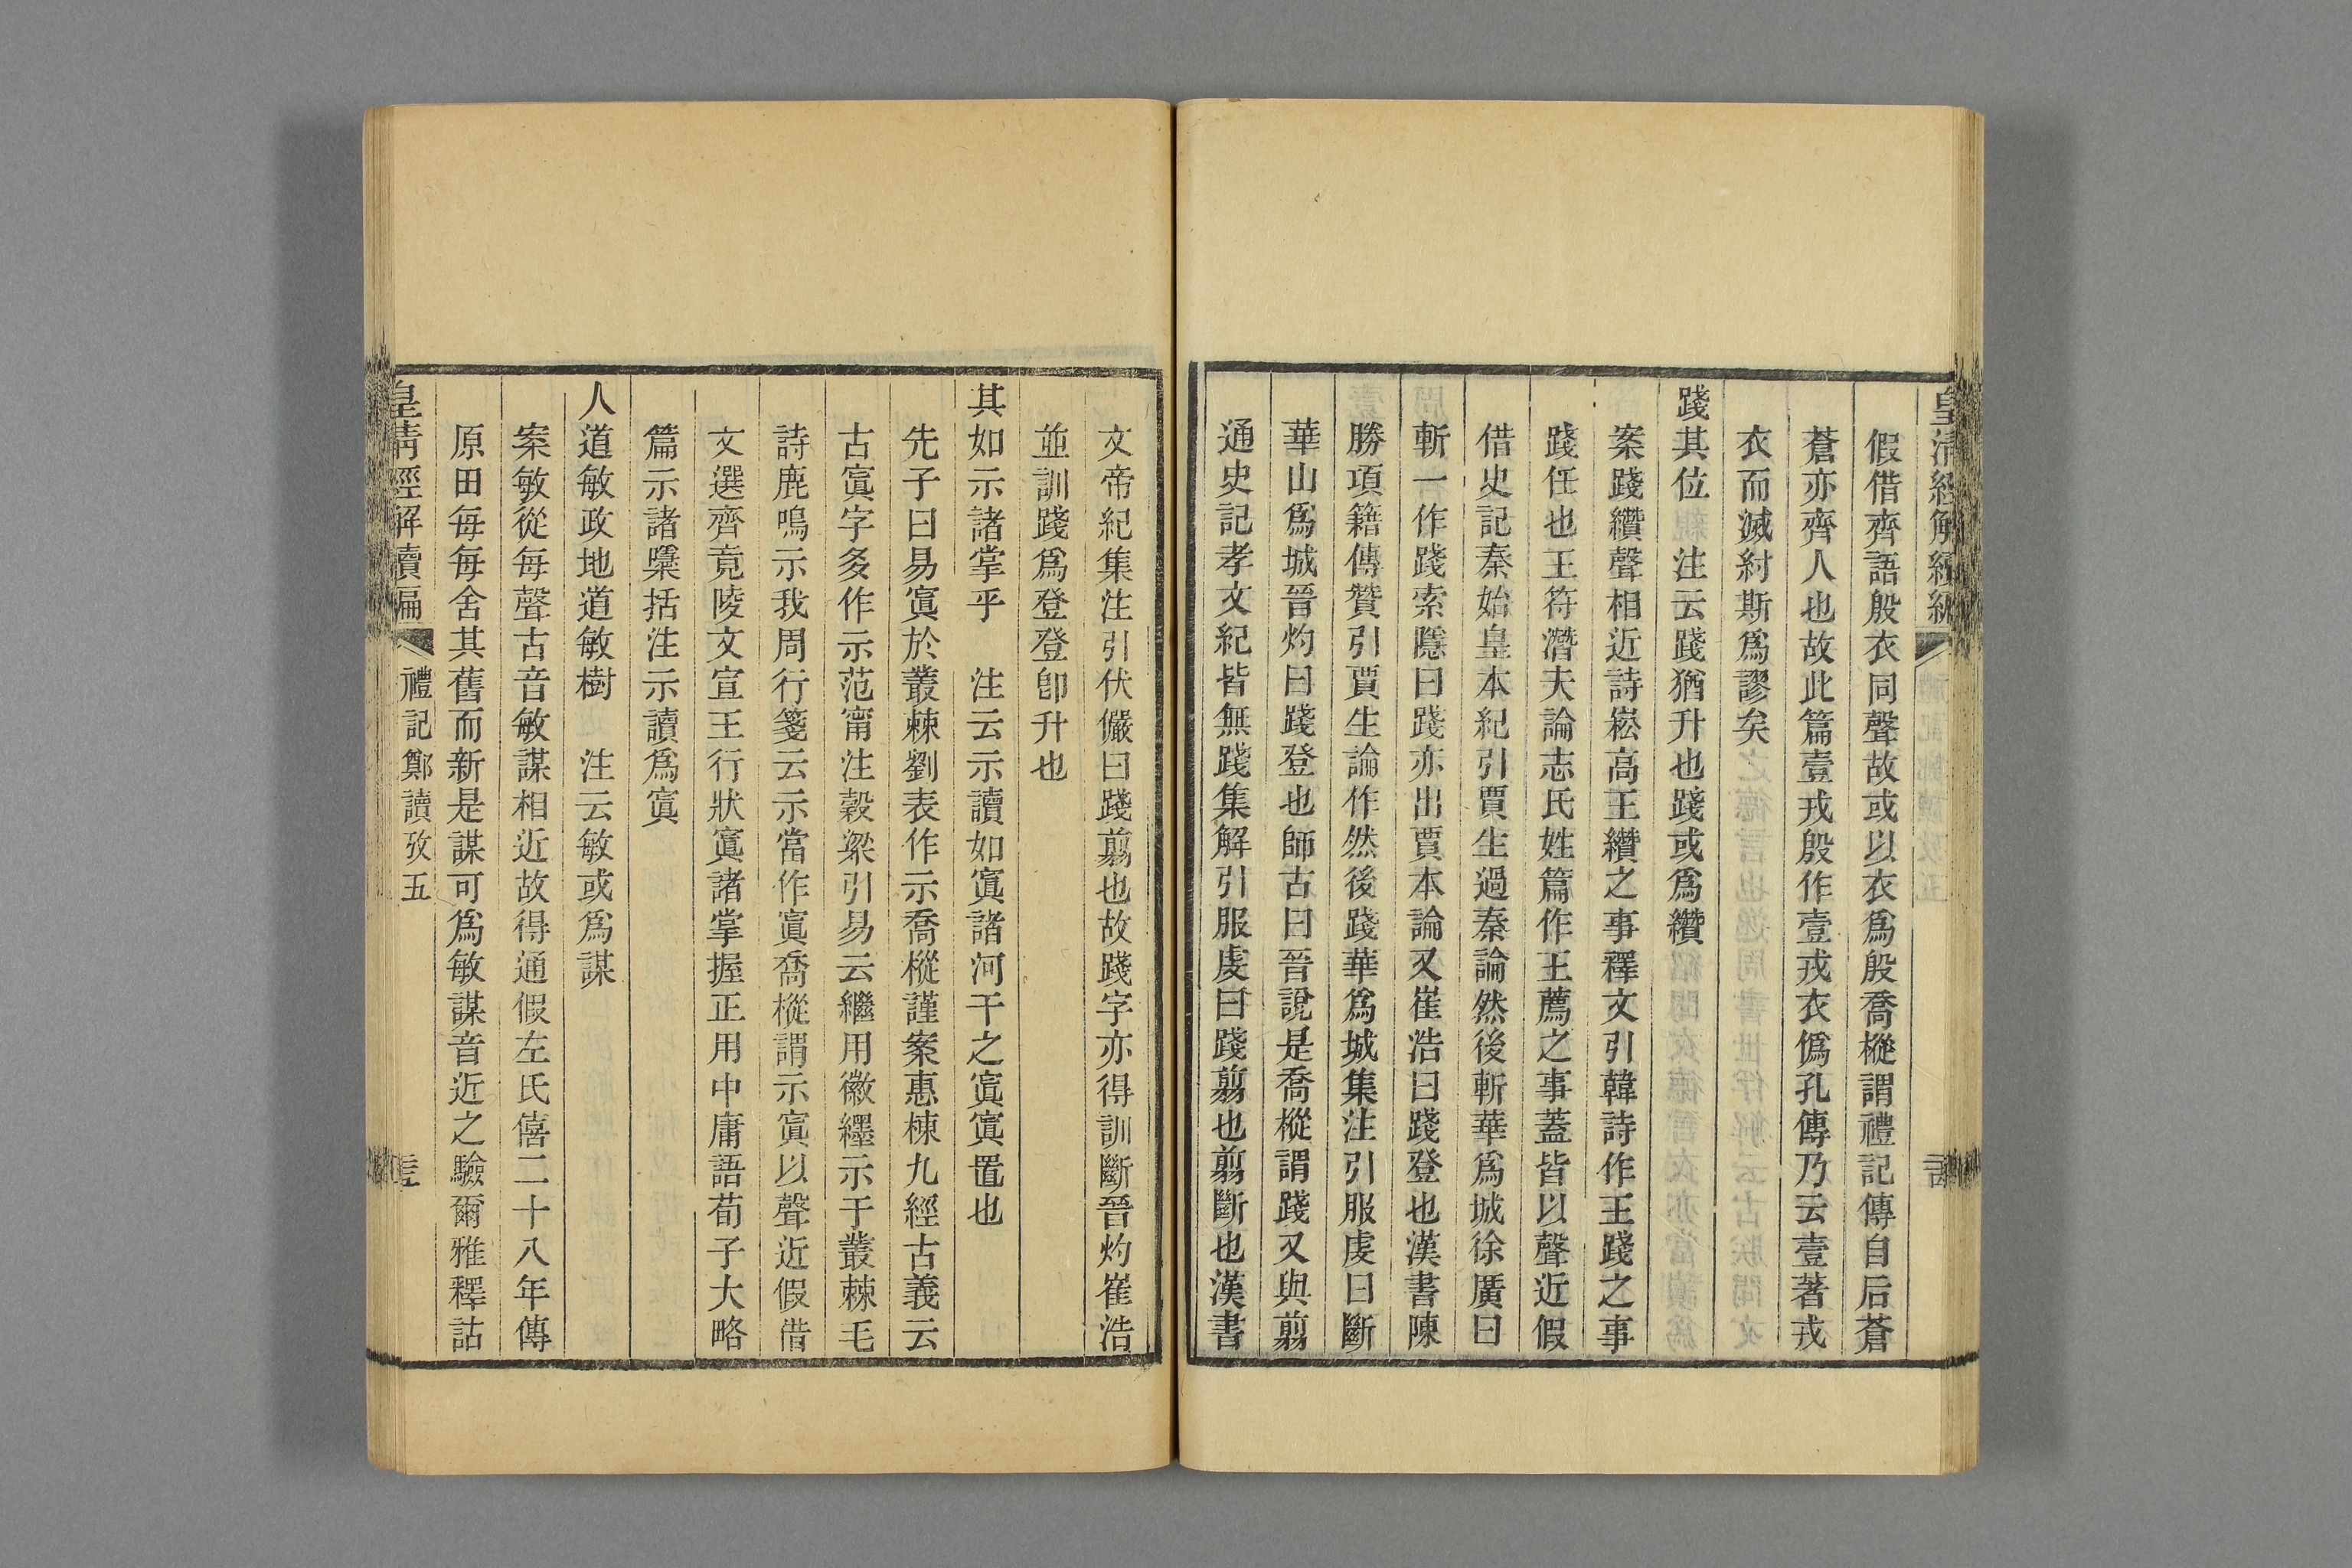 皇清經解續編
假借齊語殷衣同聲故或以衣爲殷喬樅謂禮記傳自后蒼
蒼亦齊人也故此篇壹戎殷作壹戎衣僞孔傳乃云壹著戎
衣而滅紂斯爲謬矣
踐其位　注云踐猶升也踐或爲纘
案踐纘聲相近詩崧高王纘之事釋文引韓詩作王踐之事
踐任也王符潛夫論志氏姓篇作王薦之事蓋皆以聲近假
借史記秦始皇本紀引賈生過秦論然後斬華爲城徐廣曰
斬一作踐索隱曰踐亦出賈本論又崔浩曰踐登也漢書陳
勝項籍傳贊引賈生論作然後踐華爲城集注引服虔曰斷
華山爲城晉灼曰踐登也師古曰晉說是喬樅謂踐又與翦
通史記孝文紀皆無踐集解引服虔曰踐翦也翦斷也漢書
文帝紀集注引伏儼曰踐翦也故踐字亦得訓斷晉灼崔浩
並訓踐爲登登卽升也
其如示諸掌乎　注云示讀如寘諸河干之寘寘置也
先子曰易寘於叢棘劉表作示喬樅謹案惠棟九經古義云
古寘字多作示范甯注穀梁引易云繼用徽纆示于叢棘毛
詩鹿鳴示我周行箋云示當作寘喬樅謂示寘以聲近假借
文選齊竟陵文宣王行狀寘諸掌握正用中庸語荀子大略
篇示諸櫽括注示讀爲寘
人道敏政地道敏樹　注云敏或爲謀
案敏從每聲古音敏謀相近故得通假左氏僖二十八年傳
原田每每舍其舊而新是謀可爲敏謀音近之驗爾雅釋詁
皇清經解續編　禮記鄭讀攷五